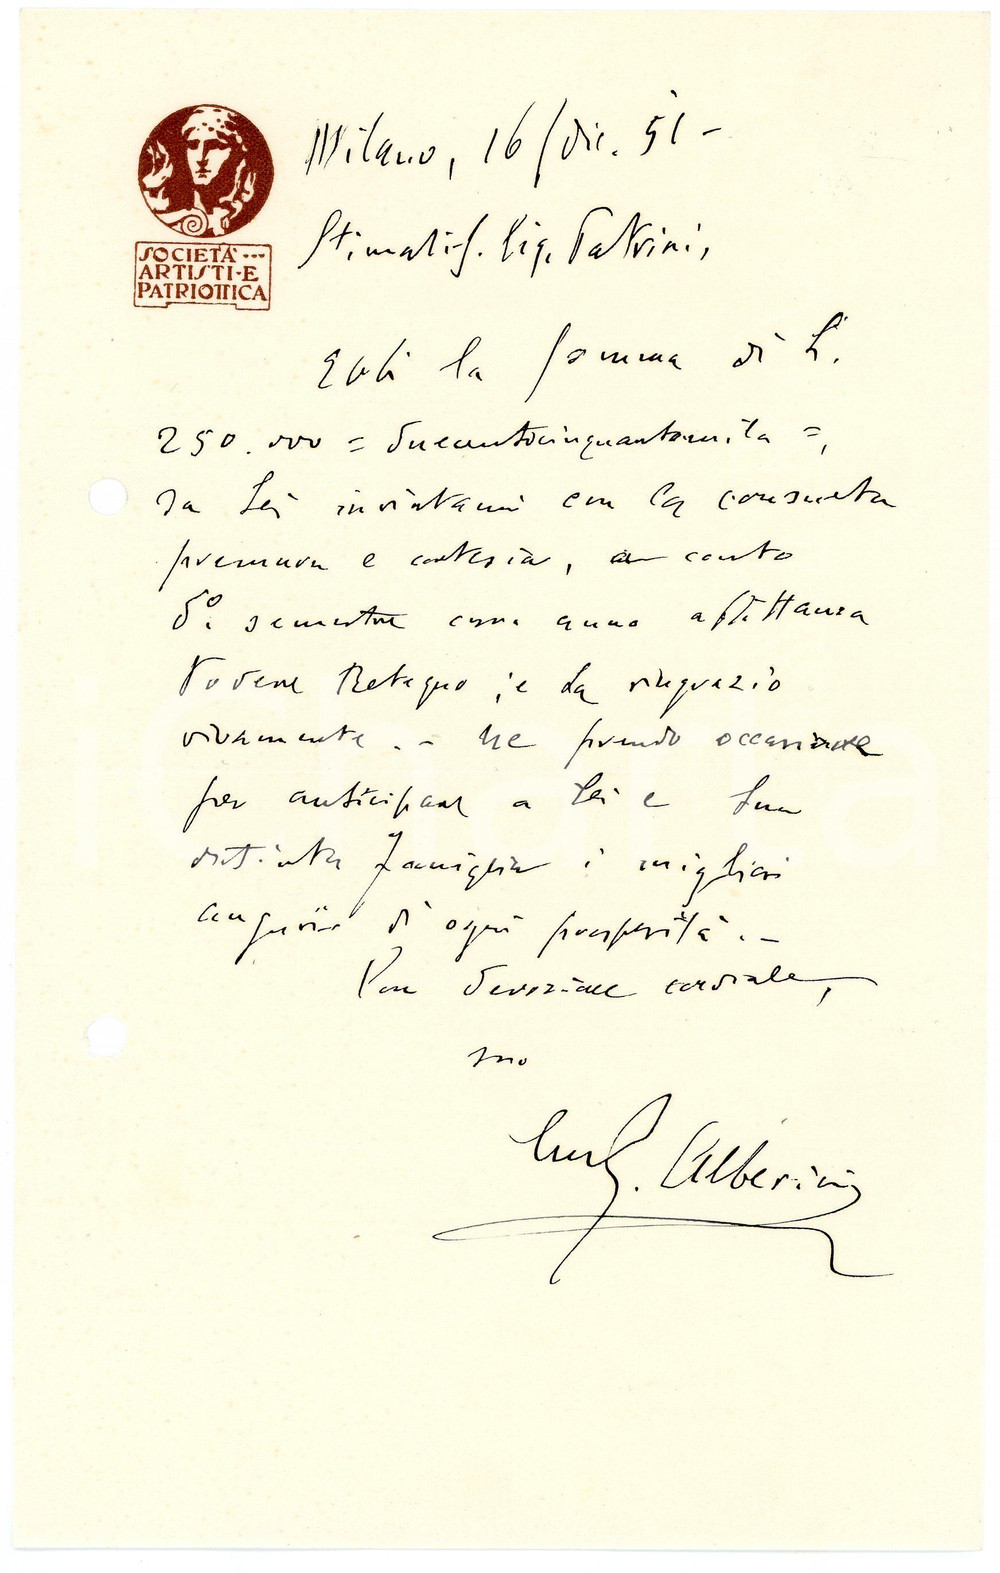 SOCIETÀ ...
ARTISTI·E
PATRIOTTICA
Milano, 16/dic. 51 -
Stimatis. Sig. Patrini,
Ebbi la somma di L.
250.000 = duecentocinquantamila =,
da Lei inviatami con la consueta
premura e cortesia, a conto
2º semestre corr. anno affittanza
Podere Retegno ; e La ringrazio
vivamente . - Ne prendo occasione
per anticipare a Lei e Sua
distinta Famiglia i migliori
auguri di ogni prosperità . -
Con devozione cordiale,
suo
Alberini